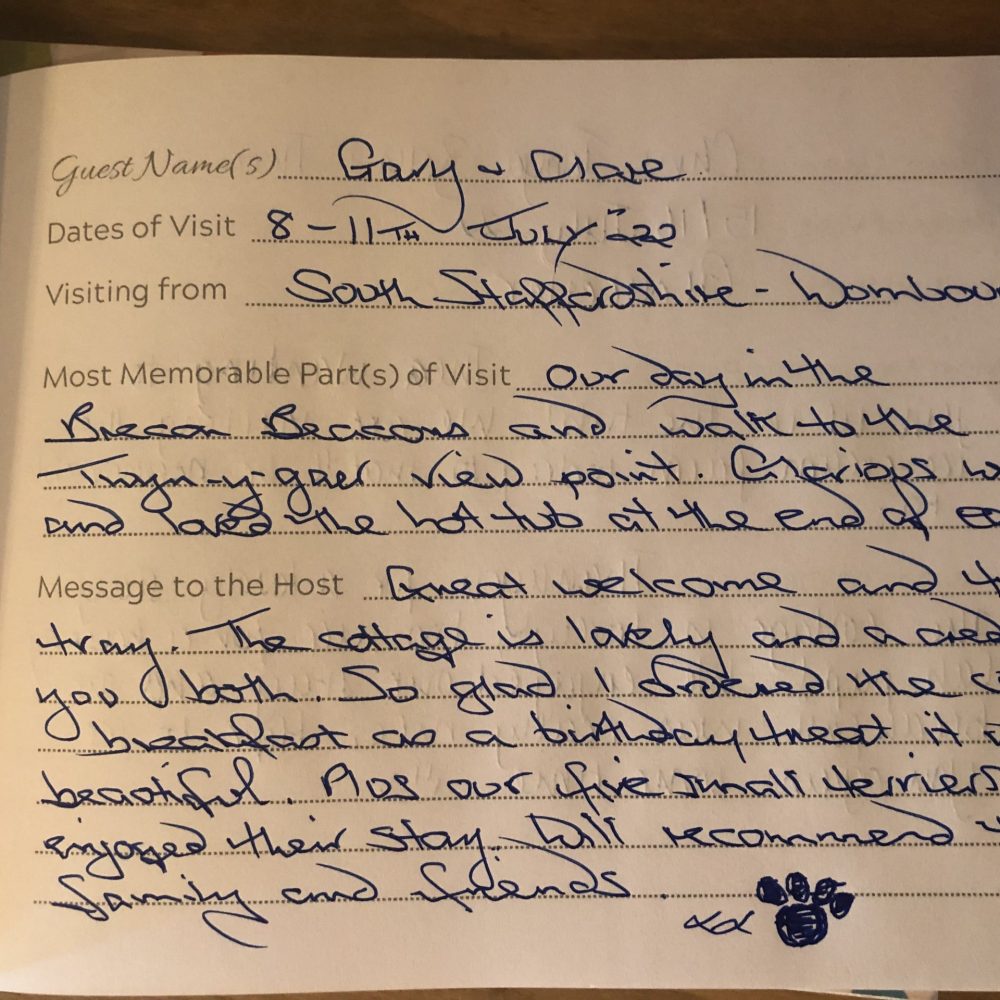 Guest Name(s) Gary & Clare
Dates of Visit 8-11TH JULY 22
Visiting from South Staffordshire - Wombou
Most Memorable Part(s) of Visit Our day in the
Brecon Beacons and walk to the
view point. Glorious w
and loved the hot tub at the end of ea
Message to the Host Great welcome and t
tray. The cottage is lovely and a cred
you both. So glad I ordered the
breakfast as a birthday treat it
beautiful. Plus our five small terriers
enjoyed their stay. Will recommend
family and friends.
xx